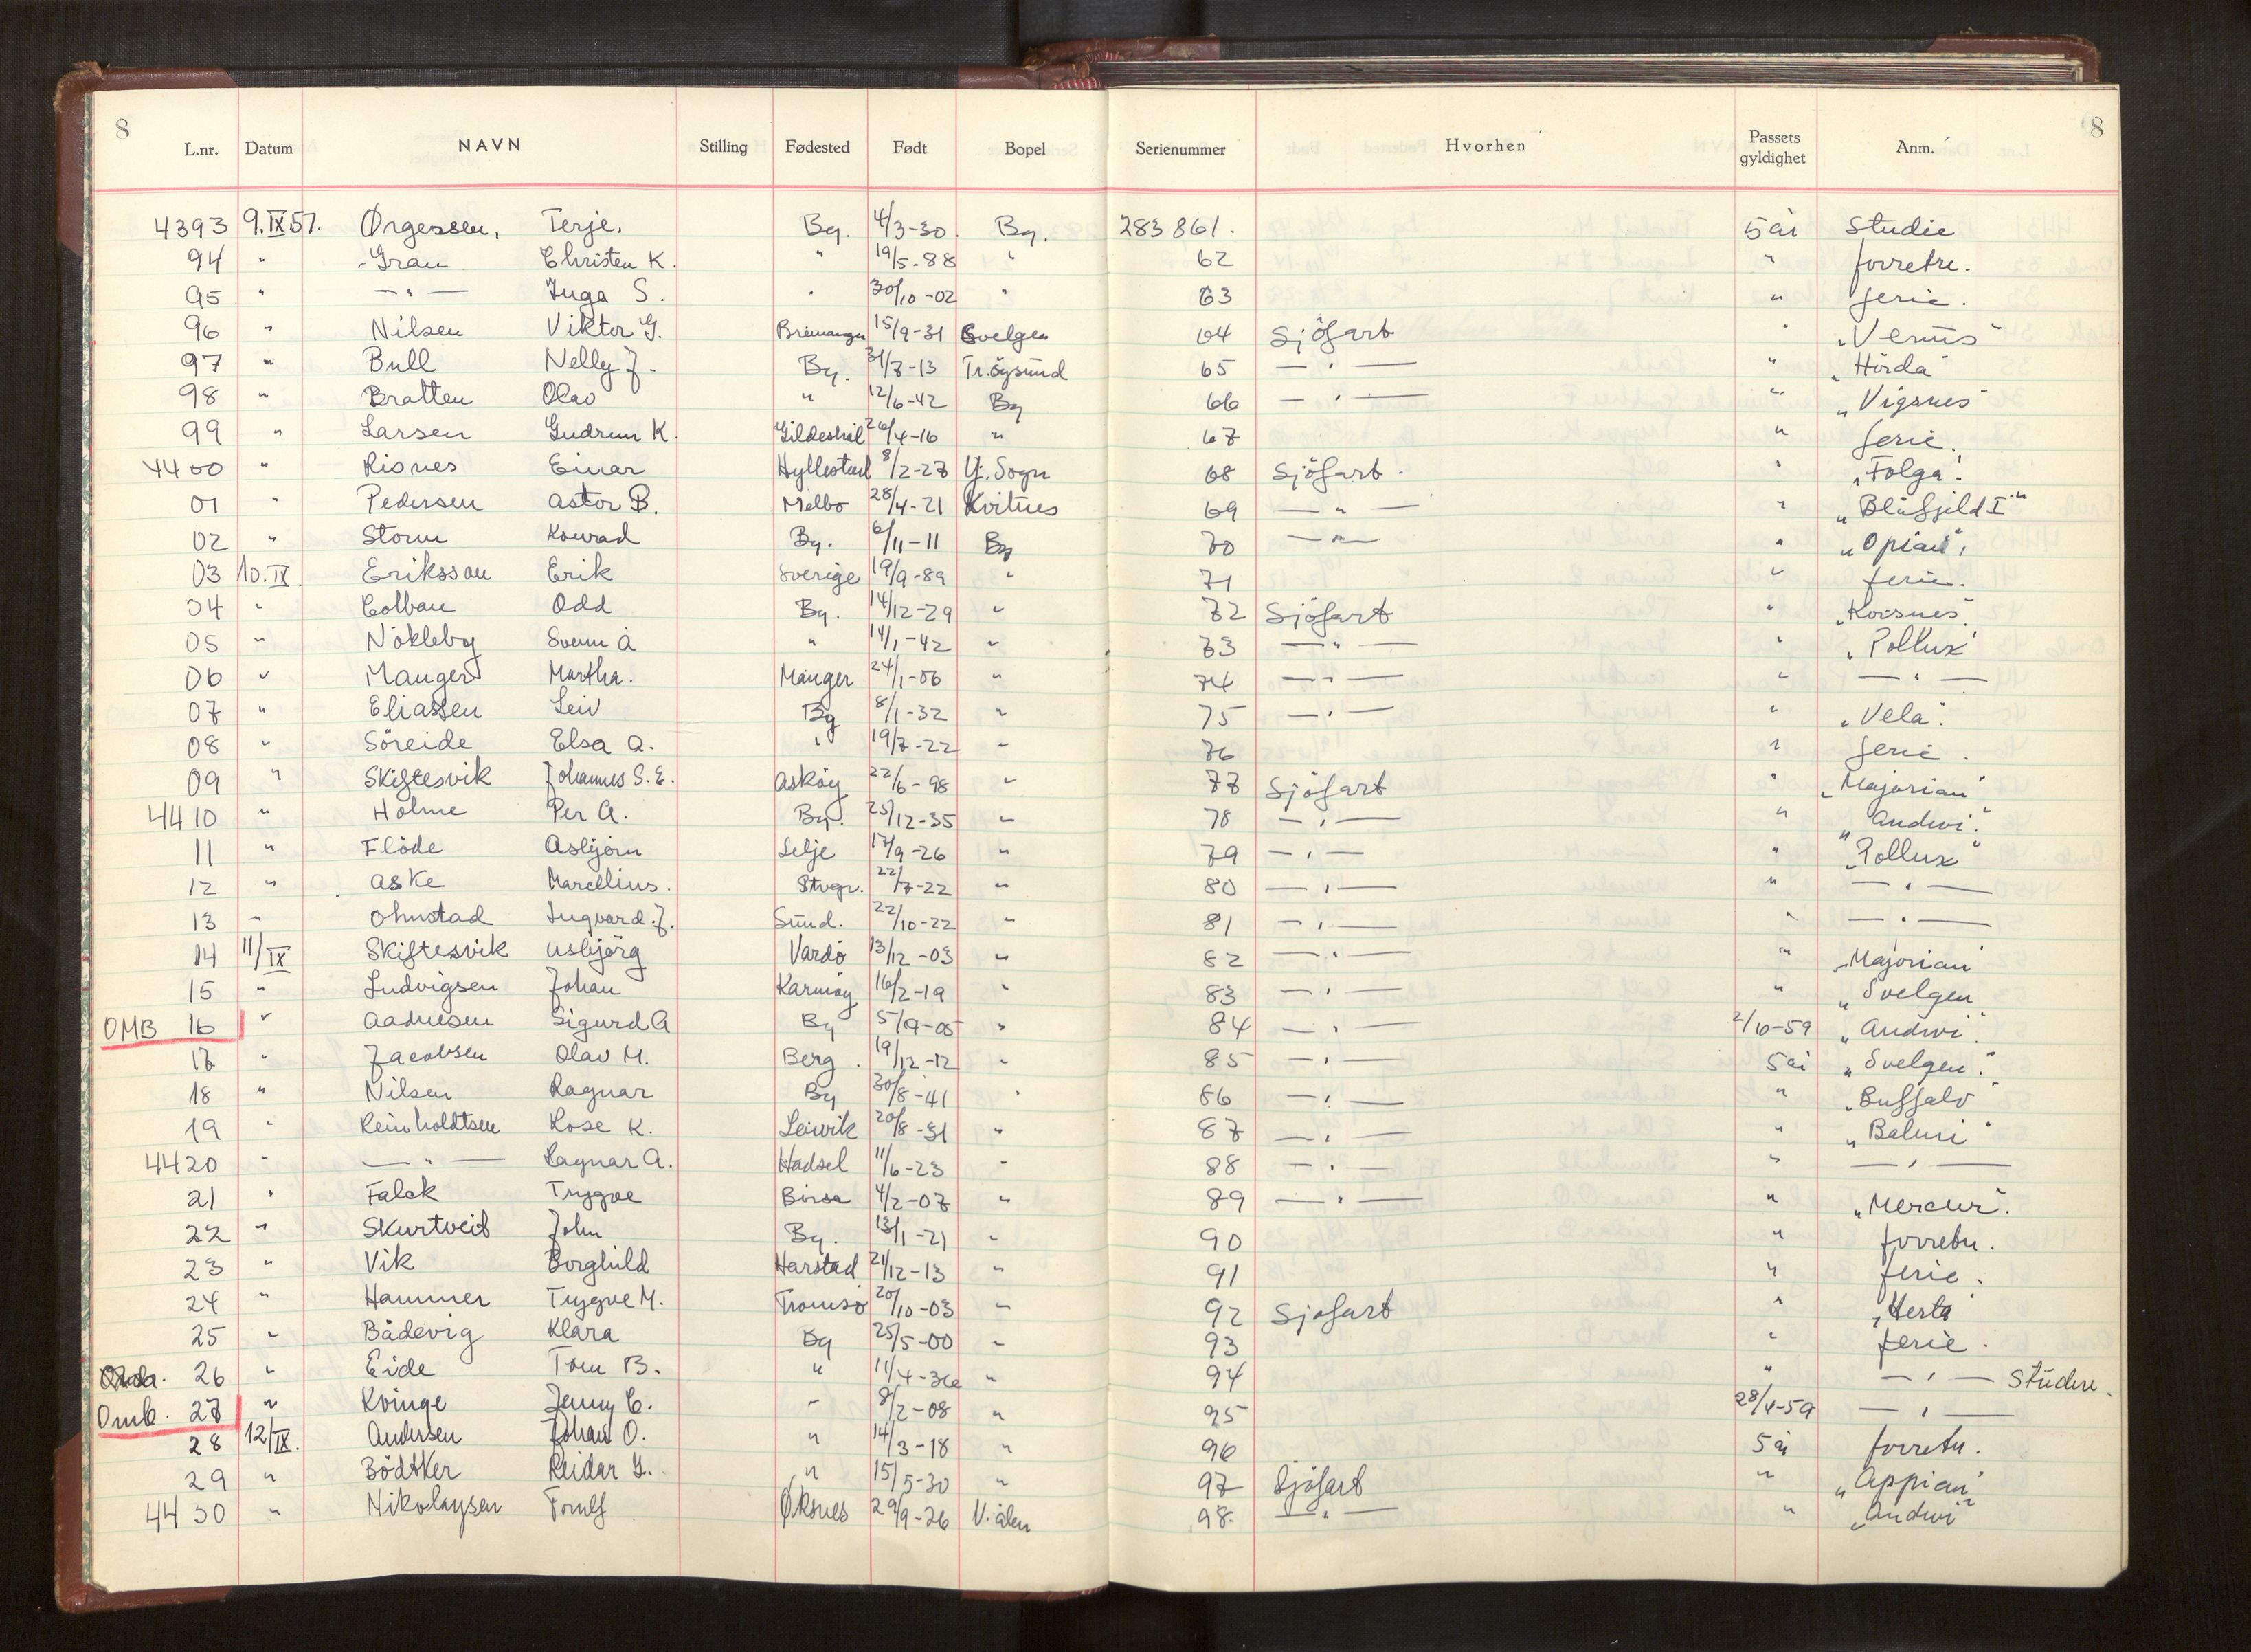 8 8
L.nr. Datum NAVN Stilling Fødested Født Bopel Serienummer Hvorhen Passets gyldighet Anm.
4393 9.IX 57. Ørgessen, Terje. Bg. 4/3-30. Bg. 283 861. 5 år studie
94 " Grau Christen K. " 19/5-88 " 62 " forretn.
95 " — " — Inga S. " 30/10-02 " 63 " ferie.
96 " Nilsen Viktor G. Bremanger 15/9-31 Svelgen 64 Sjöfart " "Venus"
97 " Bull Nelly J. Bg. 31/7-13 Tr.öysund 65 — " — " "Hörda"
98 " Bratten Olav " 12/6-42 Bg 66 — " — " "Vigsnes"
99 " Larsen Gudrun K. Gildeskål 26/4-16 " 67 " ferie.
4400 " Risnes Einar Hyllestad 8/2-27 Y. Sogn 68 Sjöfart. " "Folga".
01 " Pedersen Astor B. Melbo 28/4-21 Kvitnes 69 — " — " "Blåfjeld I"
02 " Storm Konrad Bg. 6/11-11 Bg 70 — " — " "Opian",
03 10.IX. Eriksson Erik Sverige 19/9-89 " 71 " ferie.
04 " Colban Odd Bg. 14/12-29 " 72 Sjöfart " "Korsnes".
05 " Nökleby Svenn Å " 14/1-42 " 73 — " — " "Pollux"
06 " Manger Martha. Manger 24/1-06 " 74 — " — " — " —
07 " Eliassen Leiv Bg 8/1-32 " 75 — " — " "Vela".
08 " Söreide Elsa A. " 19/7-22 " 76 " ferie.
09 " Skiftesvik Johannes S.E. Asköy 22/6-98 " 77 Sjöfart " "Majorian"
4410 " Holme Per A. Bg. 25/12-35 " 78 — " — " "Andwi".
11 " Flöde Asbjörn Selje 17/9-26 " 79 — " — " "Pollux"
12 " Aske Marcellius. Stvgr. 22/7-22 " 80 — " — " — " —
13 " Ohnstad Ingvard J. Sund. 22/10-22 " 81 — " — " — " —
14 11/IX Skiftesvik Asbjörg Vardö 13/12-03 " 82 — " — " "Majorian"
15 " Ludvigsen Johan Karmöy 16/2-19 " 83 — " — " "Svelgen"
OMB 16 " Aadnesen Sigurd A Bg 5/9-05 " 84 — " — 2/10-59 "Andwi".
17 " Jacobsen Olav M. Berg. 19/12-12 " 85 — " — 5 år "Svelgen".
18 " Nilsen Ragnar Bg 30/8-41 " 86 — " — " "Buffalo"
19 " Reinholdtsen Rose K. Leirvik 20/8-31 " 87 — " — " "Baluni"
4420 " — " — Ragnar A. Hadsel 11/6-23 " 88 — " — " — " —
21 " Falck Trygve Börsa 4/2-07 " 89 — " — " "Mercur".
22 " Skurtveit John Bg. 13/1-21 " 90 " forretn.
23 " Vik Borghild Harstad 21/12-13 " 91 " ferie.
24 " Hammer Trygve M. Tromsö 20/10-03 " 92 Sjöfart " "Herta"
25 " Bådevig Klara Bg 25/5-00 " 93 " ferie.
26 " Eide Tom B. " 11/4-36 " 94 " — " — studere.
Omb. 27 " Kvinge Jenny C. " 8/2-08 " 95 28/4-59 — " —
28 12/IX. Andersen Johan O. " 14/3-18 " 96 5 år forretn.
29 " Bödtker Reidar G. " 15/5-30 " 97 Sjöfart " "Appian"
4430 " Nikolaysen Tomlf Øksnes 29/9-26 V.ålen 98. — " — " "Andwi"